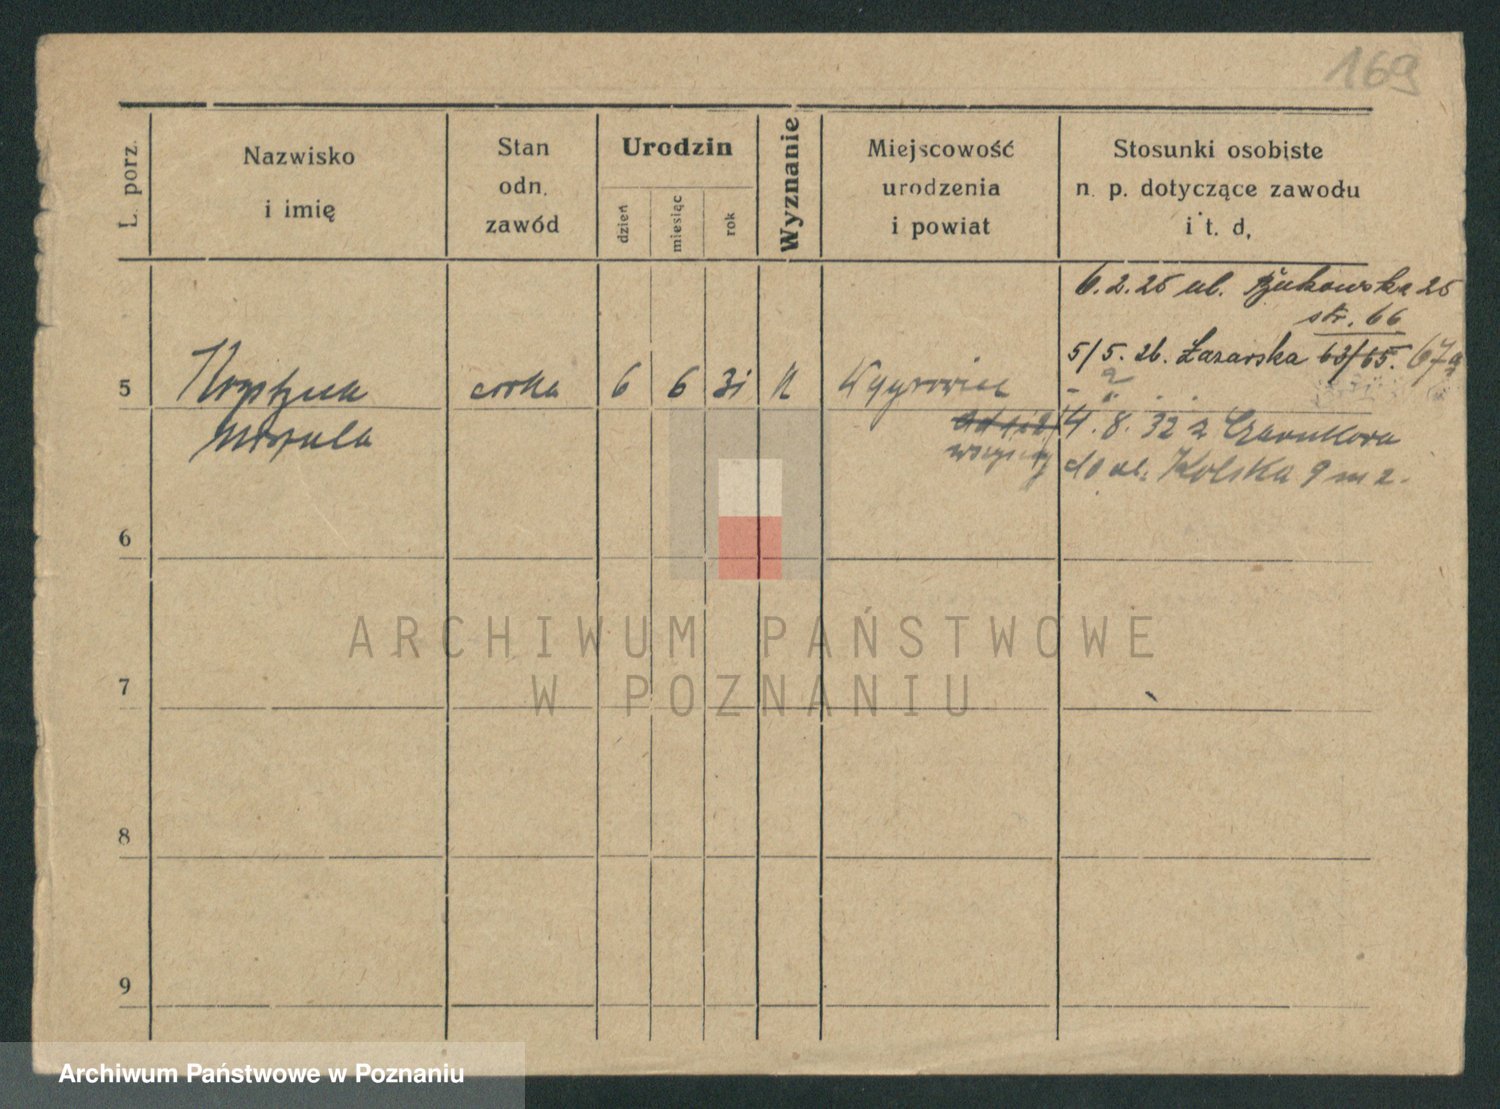 169
L. porz.
Nazwisko
i imię
Stan
odn.
zawód
Urodzin
dzień
miesiąc
rok
Wyznanie
Miejscowość
urodzenia
i powiat
Stosunki osobiste
n. p. dotyczące zawodu
i t. d,
6.2.25 ul. Bukowska 25
str. 66
5/5. 26. Łazarska 63/65. 67a
5
córka 6 6 31
Urszula
4. 8. 32 z Czarnkowa
do ul. Kolska 9 m 2.
6
7
8
9
ARCHIWUM PAŃSTWOWE
W POZNANIU
Archiwum Państwowe w Poznaniu